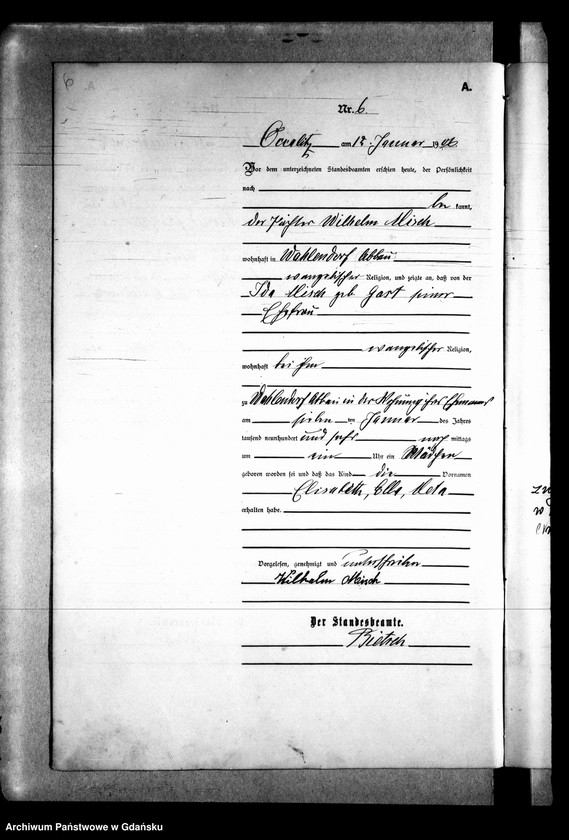 6
A.
Nr. 6
Occalitz am 12. Januar 1906
Vor dem unterzeichneten Standesbeamten erschien heute, der Persönlichkeit
nach
be kannt,
der Pächter Wilhelm Misch
wohnhaft in Wahlendorf Abbau
evangelischer Religion, und zeigte an, daß von der
Ida Misch geb. Gast seiner
Ehefrau
evangelischer Religion,
wohnhaft bei ihm
zu Wahlendorf Abbau in der Wohnung ihres Ehemannes
am sieben ten Januar des Jahres
tausend neunhundert und sechs nach mittags
um ein Uhr ein Mädchen
geboren worden sei und daß das Kind die Vornamen
Elisabeth, Ella, Meta
erhalten habe.
Vorgelesen, genehmigt und unterschrieben
Wilhelm Misch
Der Standesbeamte.
Archiwum Państwowe w Gdańsku